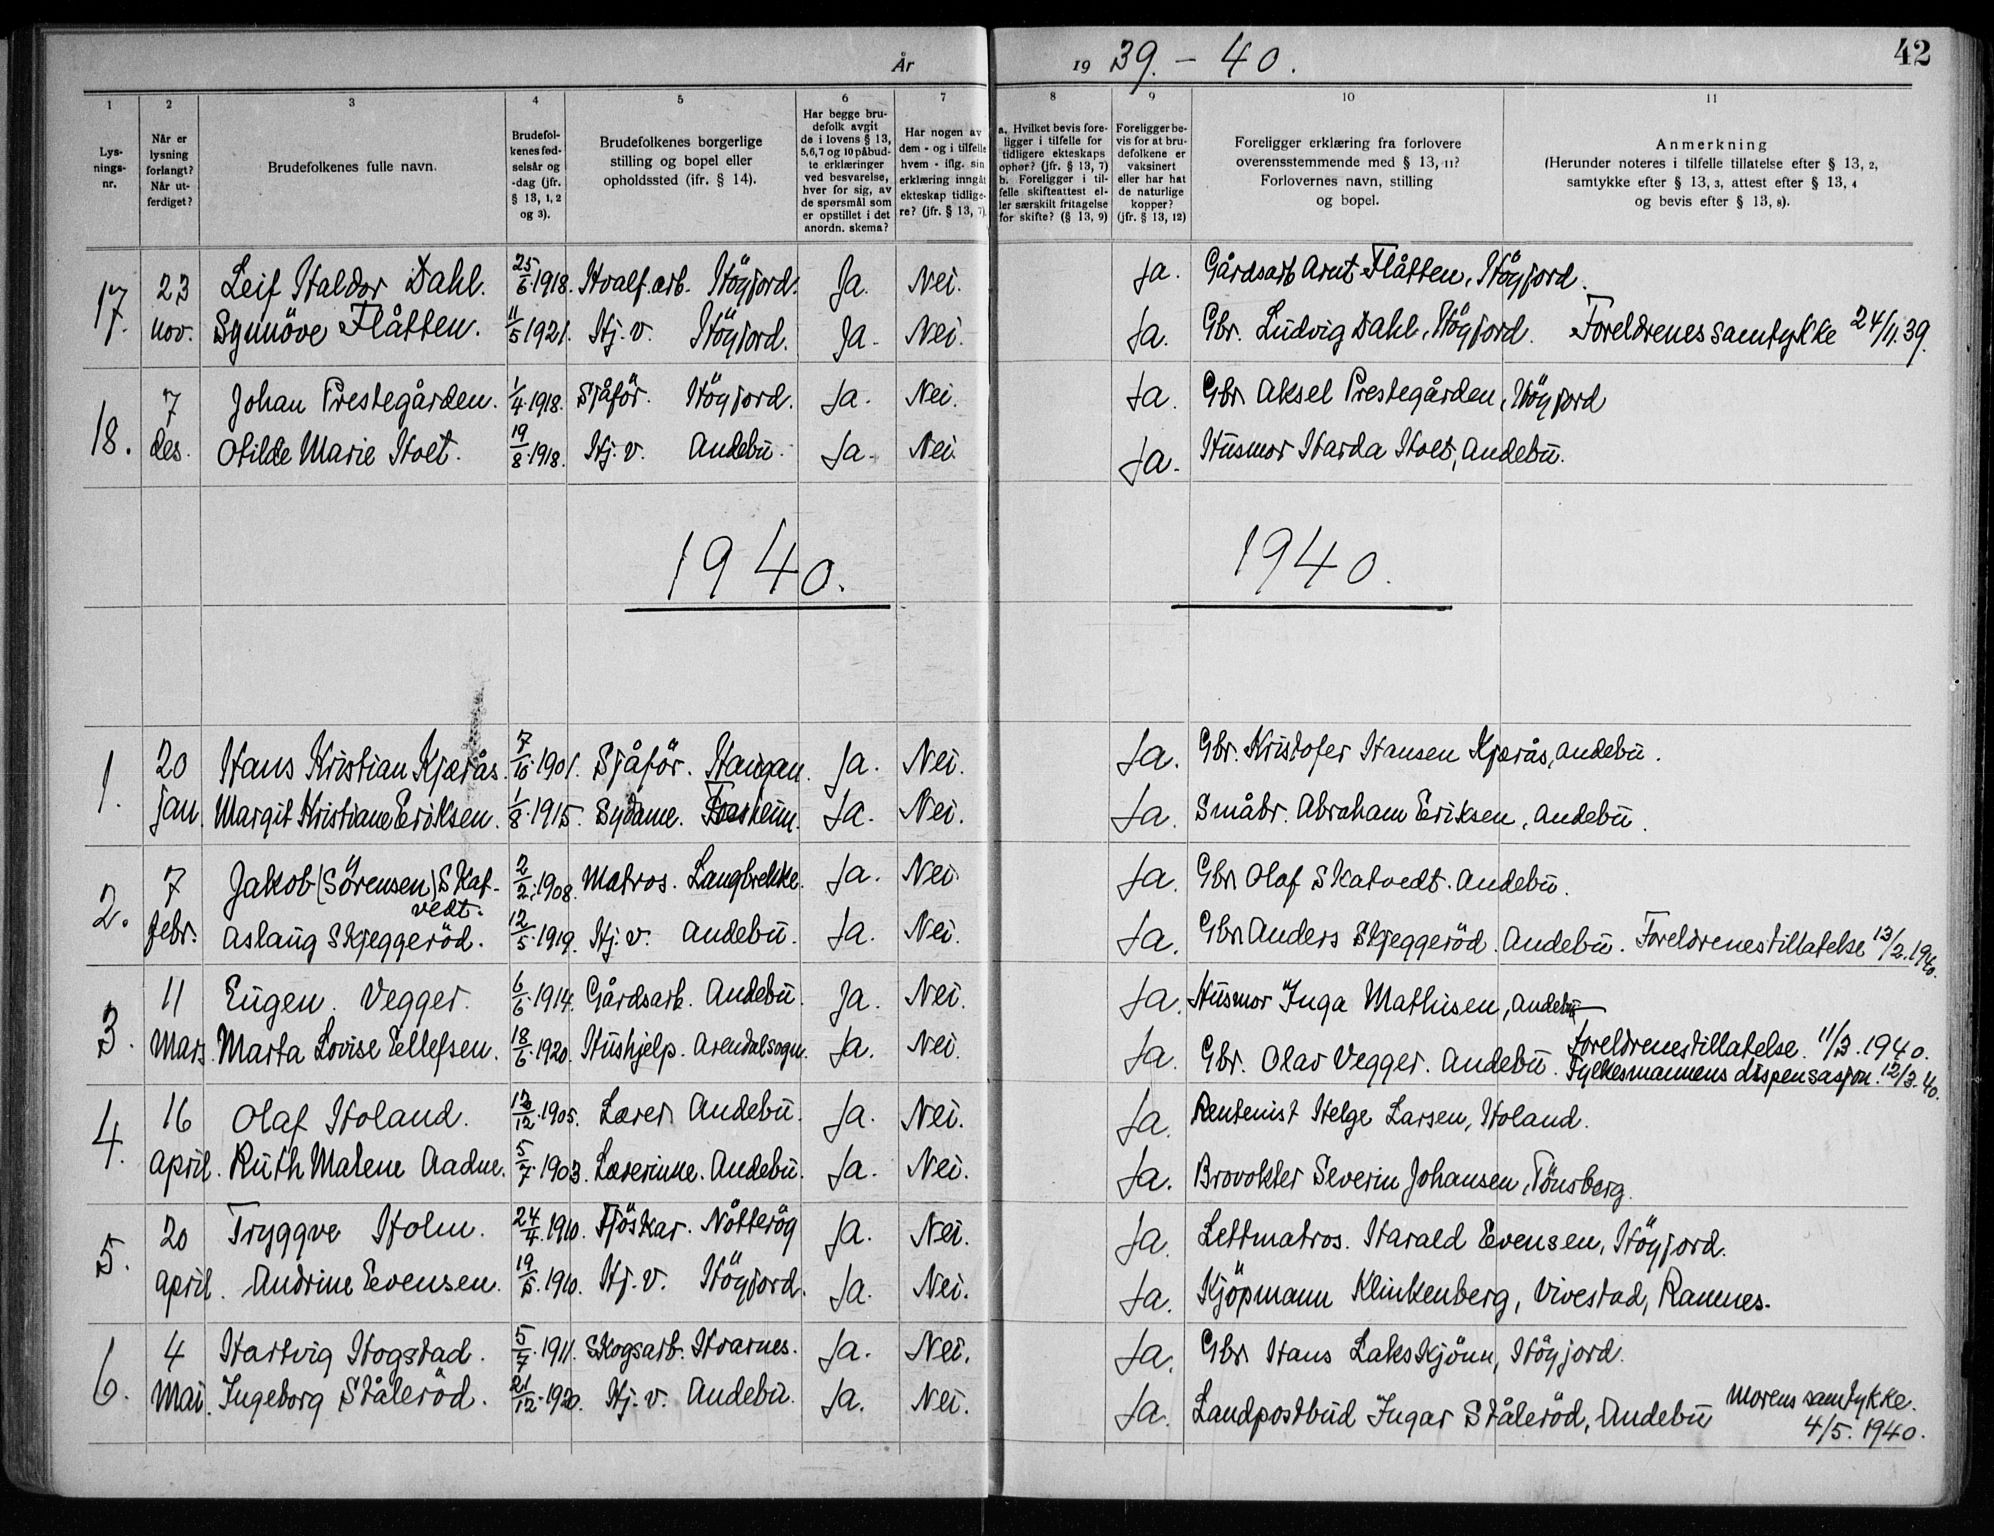 År 19 39. - 40.
42
1 2 3 4 5 6 7 8 9 10 11
Lys-
nings-
nr.
Når er
lysning
forlangt?
Når ut-
ferdiget?
Brudefolkenes fulle navn.
Brudefol-
kenes fød-
selsår og
-dag (jfr.
§ 13, 1, 2
og 3).
Brudefolkenes borgerlige
stilling og bopel eller
opholdssted (ifr. § 14).
Har begge bru-
defolk avgit
de i lovens § 13,
5,6,7 og 10 påbud-
te erklæringer
ved besvarelse,
hver for sig, av
de spørsmål som
er opstillet i det
anordn. skema?
Har nogen av
dem - og i tilfelle
hvem - iflg. sin
erklæring inngåt
ekteskap tidlige-
re? (jfr. § 13, 7).
a. Hvilket bevis fore-
ligger i tilfelle for
tidligere ekteskaps
ophør? (jfr. § 13, 7)
b. Foreligger i til-
felle skifteattest el-
ler særskilt fritagelse
for skifte? (§ 13, 9)
Foreligger be-
vis for at bru-
defolkene er
vaksinert
eller har hat
de naturlige
kopper?
(jfr. § 13, 12)
Foreligger erklæring fra forlovere
overensstemmende med § 13, 11?
Forlovernes navn, stilling
og bopel.
Anmerkning
(Herunder noteres i tilfelle tillatelse efter § 13, 2,
samtykke efter § 13, 3, attest efter § 13, 4
og bevis efter § 13, 8).
17. 23 Leif Haldor Dahl. 25/6. 1918. Hvalf.arb. Høyjord. Ja. Nei. Ja. Gårdsarb Arnt Flåtten, Høyjord.
nov. Synnöve Flåtten. 11/5 1921. Hj. v. Höyjord. Ja. Nei. Ja. Gbr. Ludvig Dahl, Höyjord. Foreldrenes samtykke 24/11. 39.
18. 7 Johan Prestegården. 1/4. 1918. Sjåför. Höyjord. Ja. Nei. Ja. Gbr. Aksel Prestegården, Höyjord
des. Otilde Marie Hoet. 19/8. 1918. Hj. v. Andebu. Ja. Nei. Ja. Husmor Harda Hoet, Andebu.
1940. 1940.
1. 20 Hans Kristian Kjærås. 7/10. 1901. Sjåför. Haugan. Ja. Nei. Ja. Gbr. Kristofer Hansen Kjærås, Andebu.
jan. Margit Kristiane Eriksen. 1/8. 1915. Sydame. Ja. Nei. Ja. Småbr. Abraham Eriksen, Andebu.
2. 7 Jakob (Sörensen) Skat- 2/2. 1908. Matros. Langbrekke. Ja. Nei Ja. Gbr. Olaf Skatvedt. Andebu.
vedt.
febr. Aslaug Skjeggeröd. 12/5. 1919. Hj. v. Andebu. Ja. Nei. Ja. Gbr. Anders Skjeggeröd. Andebu. Foreldrenes tillatelse 13/2. 1940.
3. 11 Eugen Vegger. 6/6. 1914. Gårdsarb. Andebu. Ja. Nei. Ja. Husmor Inga Mathisen, Andebu
mars. Marta Lovise Ellefsen. 18/6. 1920. Hushjelp. Arendalsogn. Ja. Nei. Ja. Gbr. Olav Vegger. Andebu. Foreldrenes tillatelse. 11/3. 1940.
Fylkesmannens dispensasjon. 12/3. 40.
4. 16 Olaf Holand. 12/12. 1905. Lærer. Andebu. Ja. Nei. Ja. Rentenist Helge Larsen, Holand.
april. Ruth Malene Aadne. 5/7. 1903. Lærerinne. Andebu. Ja. Nei. Ja. Brovokter Severin Johansen, Tönsberg.
5. 20 Tryggve Holm. 24/4. 1910. Fjöskar. Nötteröy Ja. Nei. Ja. Lettmatros. Harald Evensen, Höyjord.
april. Andrine Evensen. 19/5. 1910. Hj. v. Höyjord. Ja. Nei. Ja. Kjöpmann Klinkenberg, Vivestad, Ramnes.
6. 4 Hartvig Hogstad. 5/7. 1911. Skogsarb. Hvarnes. Ja. Nei. Ja. Gbr. Hans Lakskjönn, Höyjord.
mai. Ingeborg Ståleröd. 21/12. 1920. Hj. v. Andebu. Ja. Nei. Ja. Landpostbud Ingar Ståleröd, Andebu Morens samtykke.
4/5. 1940.